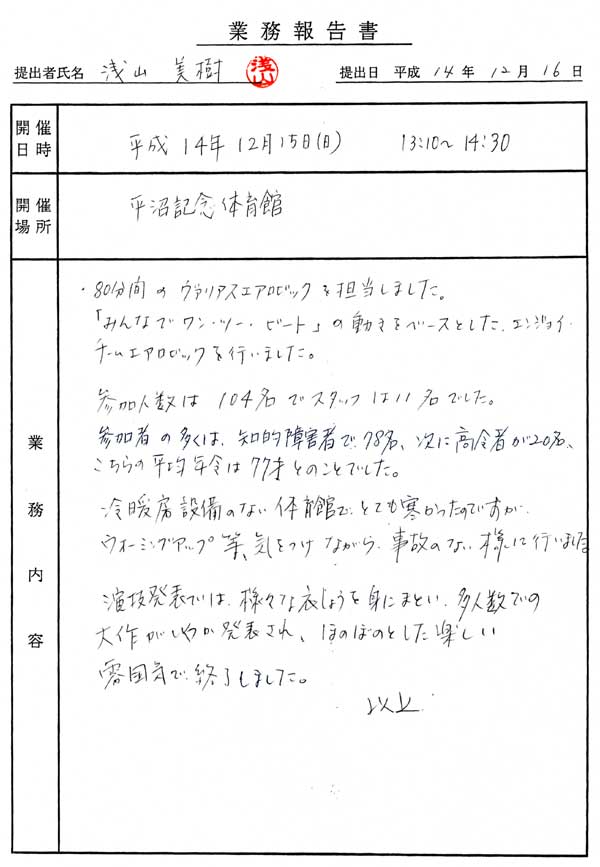 業務報告書
提出者氏名 浅山 美樹 浅山
提出日 平成 14年 12月 16日
開催日時
平成 14年 12月15日(日) 13:10〜14:30
開催場所
平沼記念体育館
業務内容
・80分間の ヴァリアスエアロビックを担当しました。
「みんなでワン・ツー・ビート」の動きをベースとした、エンジョイ・
チームエアロビックを行いました。
参加人数は 104名でスタッフは11名でした。
参加者の多くは、知的障害者で78名、次に高令者が20名、
こちらの平均年令は77才とのことでした。
冷暖房設備のない体育館で、とても寒かったのですが、
ウォーミングアップ等、気をつけながら、事故のない様に行いました
演技発表では、様々な衣しょうを身にまとい、多人数での
大作が 発表され、ほのぼのとした楽しい
雰囲気で終了しました。
以上